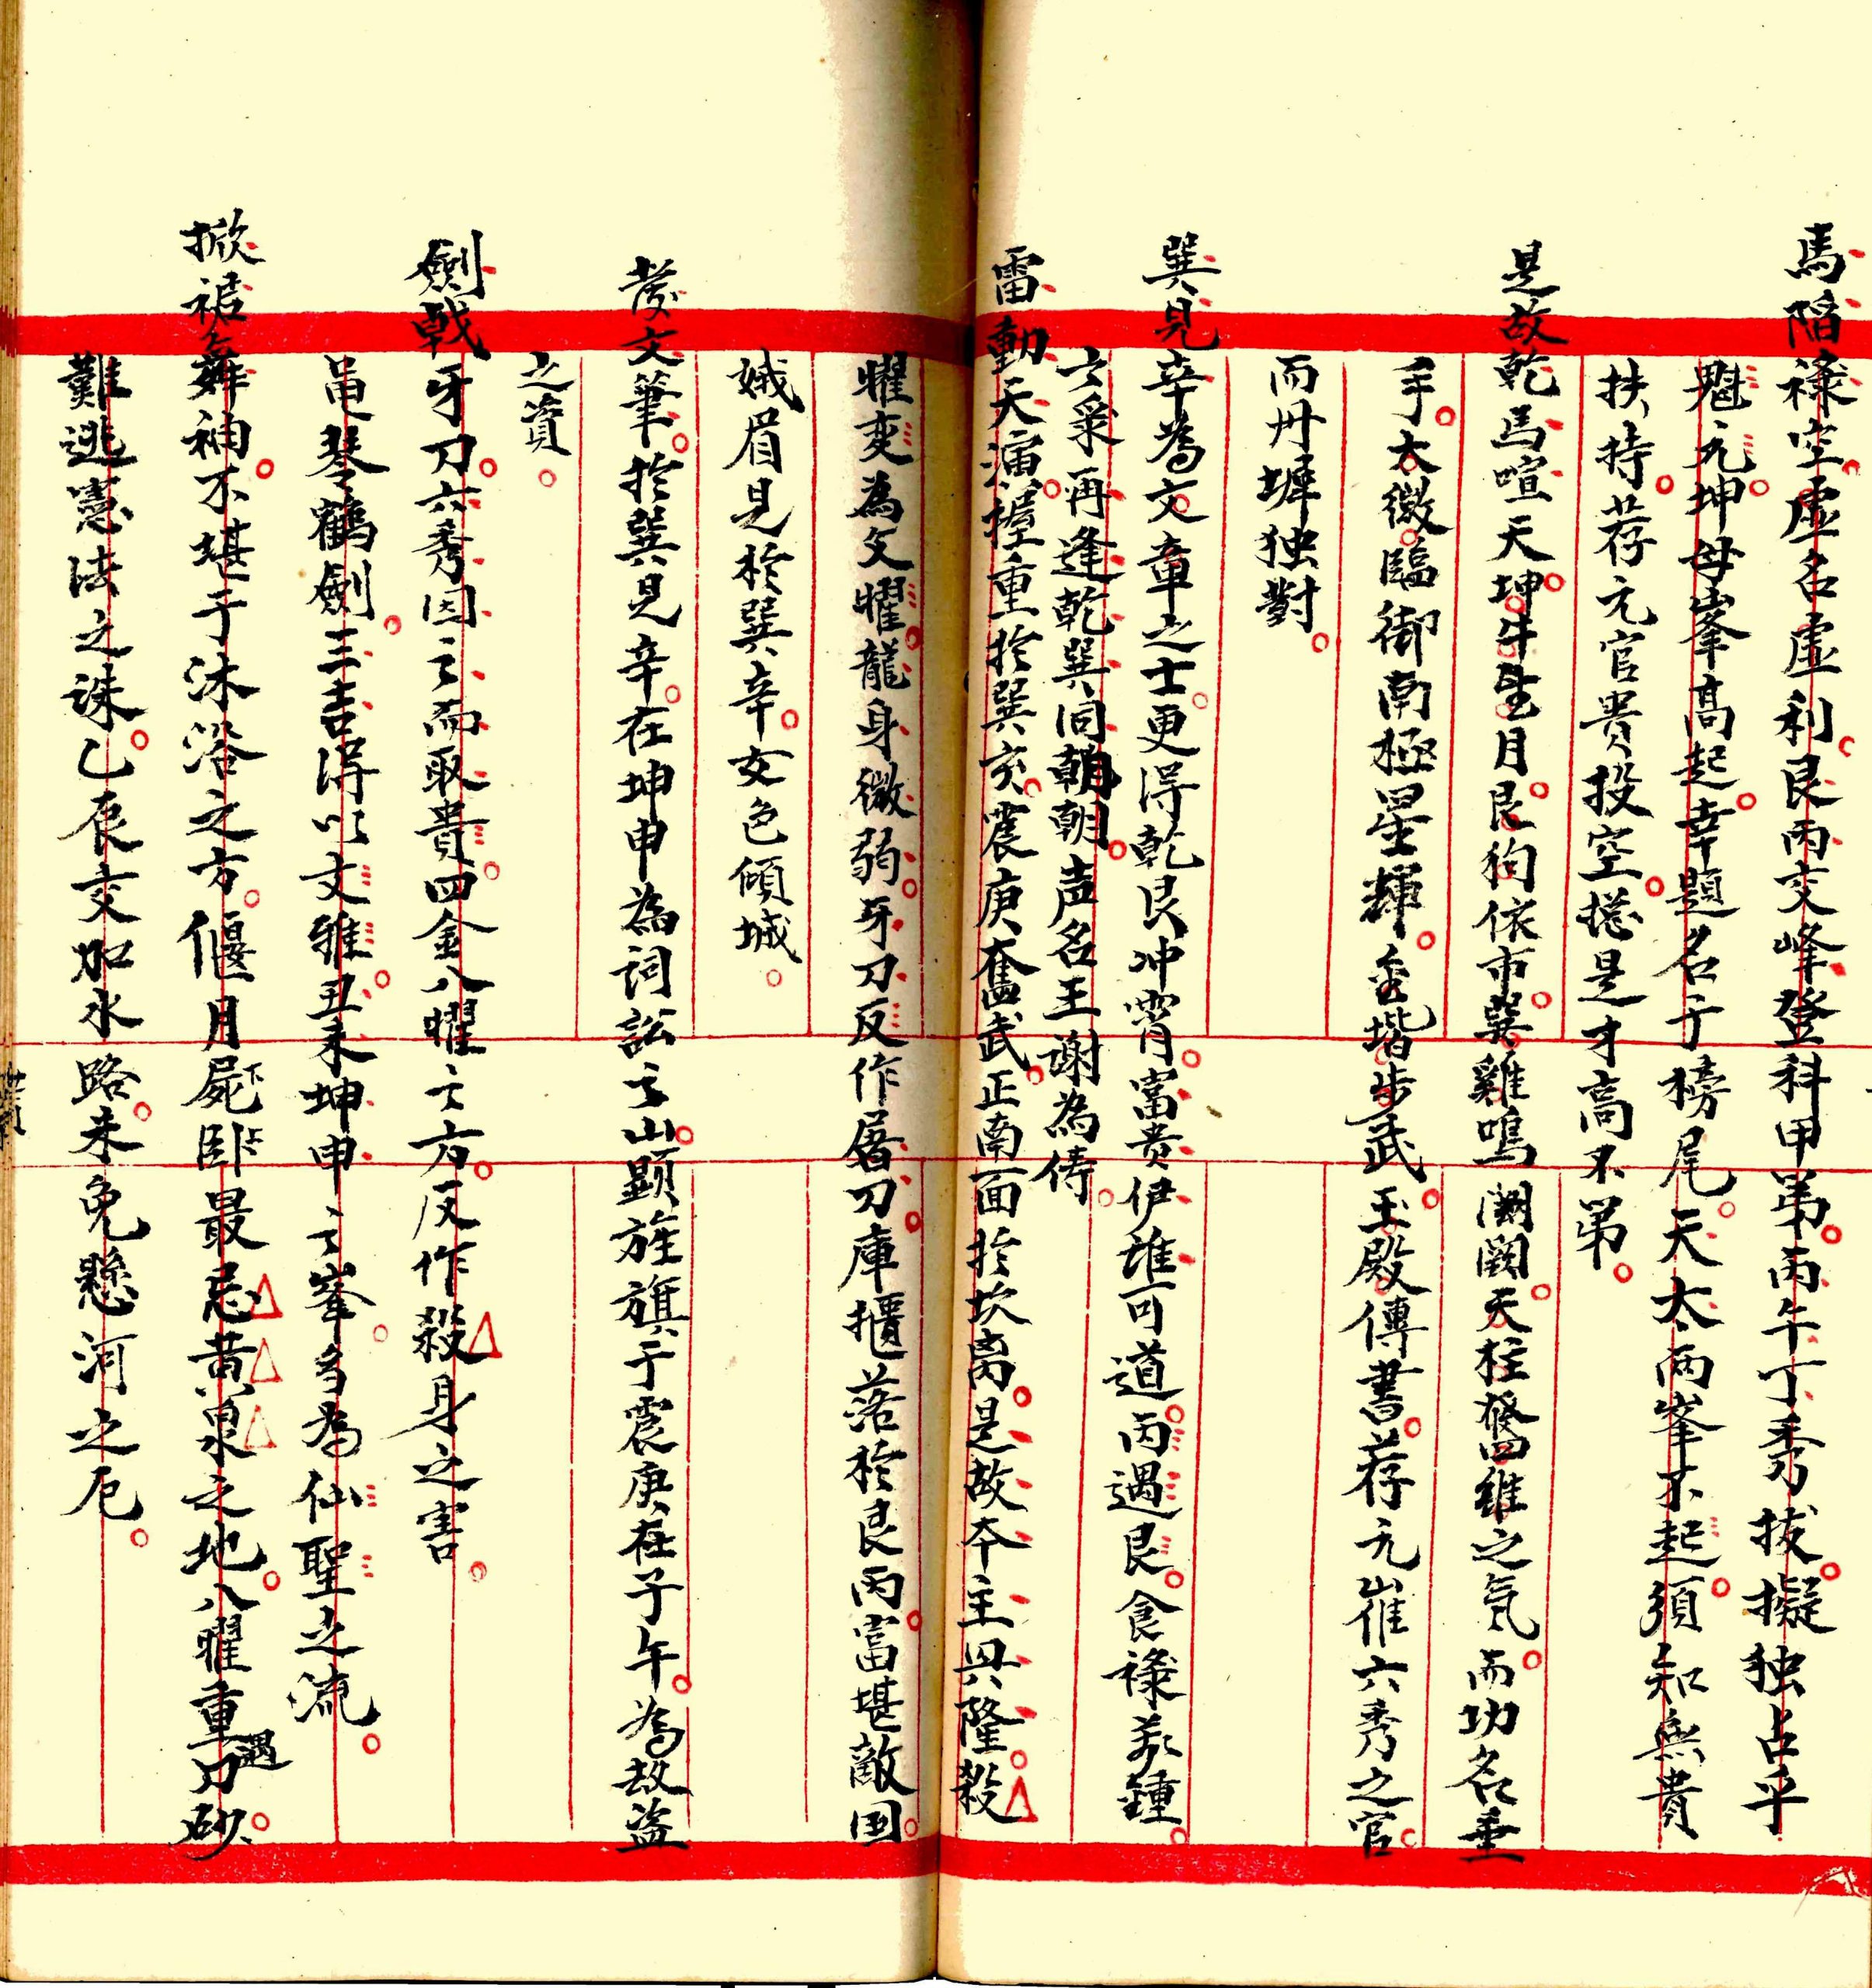 馬陷祿空虛名虛利艮丙交峰登科甲第丙午丁秀拔擬独占乎
魁元坤母峯高起幸題名于榜尾天太两峯不起須知無貴
扶持荐元官貴投空搃是才高不第
是故乾馬喧天坤牛望月艮狗依市巽雞鳴闕天柱發四維之気而功名垂
手太微臨御南極星輝金堦步武玉殿傳書荐元崔六秀之官
而丹墀独對
巽見辛為文章之士更得乾艮冲霄富贵伊誰可道丙遇艮食禄萬鍾
六粟再逢乾巽同朝朝声名王謝為儔
雷動天演握重於巽亥震庚奮武正南面於坎离是故本主興隆殺
曜変為文曜龍身微弱牙刀反作屠刀庫櫃落於艮丙富堪敵囯
娥眉見於巽辛女色傾城
之資
發文筆於巽見辛在坤申為詞訟之山顕旌旗于震庚在子午為劫盗
劍戟牙刀六秀因之而取貴四金八曜之方反作殺身之害
黾琴鶴劍三吉得以文雅丑未坤申之峯多為仙聖之流
掀裙舞袖不堪于沐浴之方偃月屍下卧上最忌黄泉之地八曜重遇刀砂
難逃憲法之誅乙辰交加水路未免懸河之厄